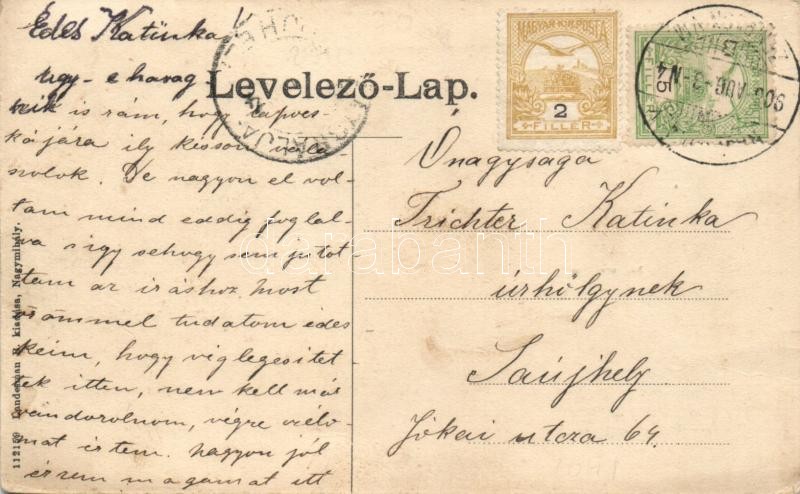 Édes Katinka!
Ugy-e harag
szik is rám, hogy lapocs-
kájára ily későn vála-
szolok. De nagyon el vol-
tam mind eddig foglal-
va s így sehogy sem jutot-
tam az íráshoz. Most
örömmel tudatom édes
keim, hogy véglegesitet-
tek itten, nem kell más
vándorolnom, végre czélo-
mat értem. Nagyon jól
érzem magamat itt
Levelező-Lap.
MAGYAR KIR. POSTA
2
FILLÉR
5
FILLÉR
Önagysága
Trichter Katinka
úrhölgynek
Saújhely
Jókai utcza 64.
112159 Landesman B. kiadása, Nagymihály.
darabanth